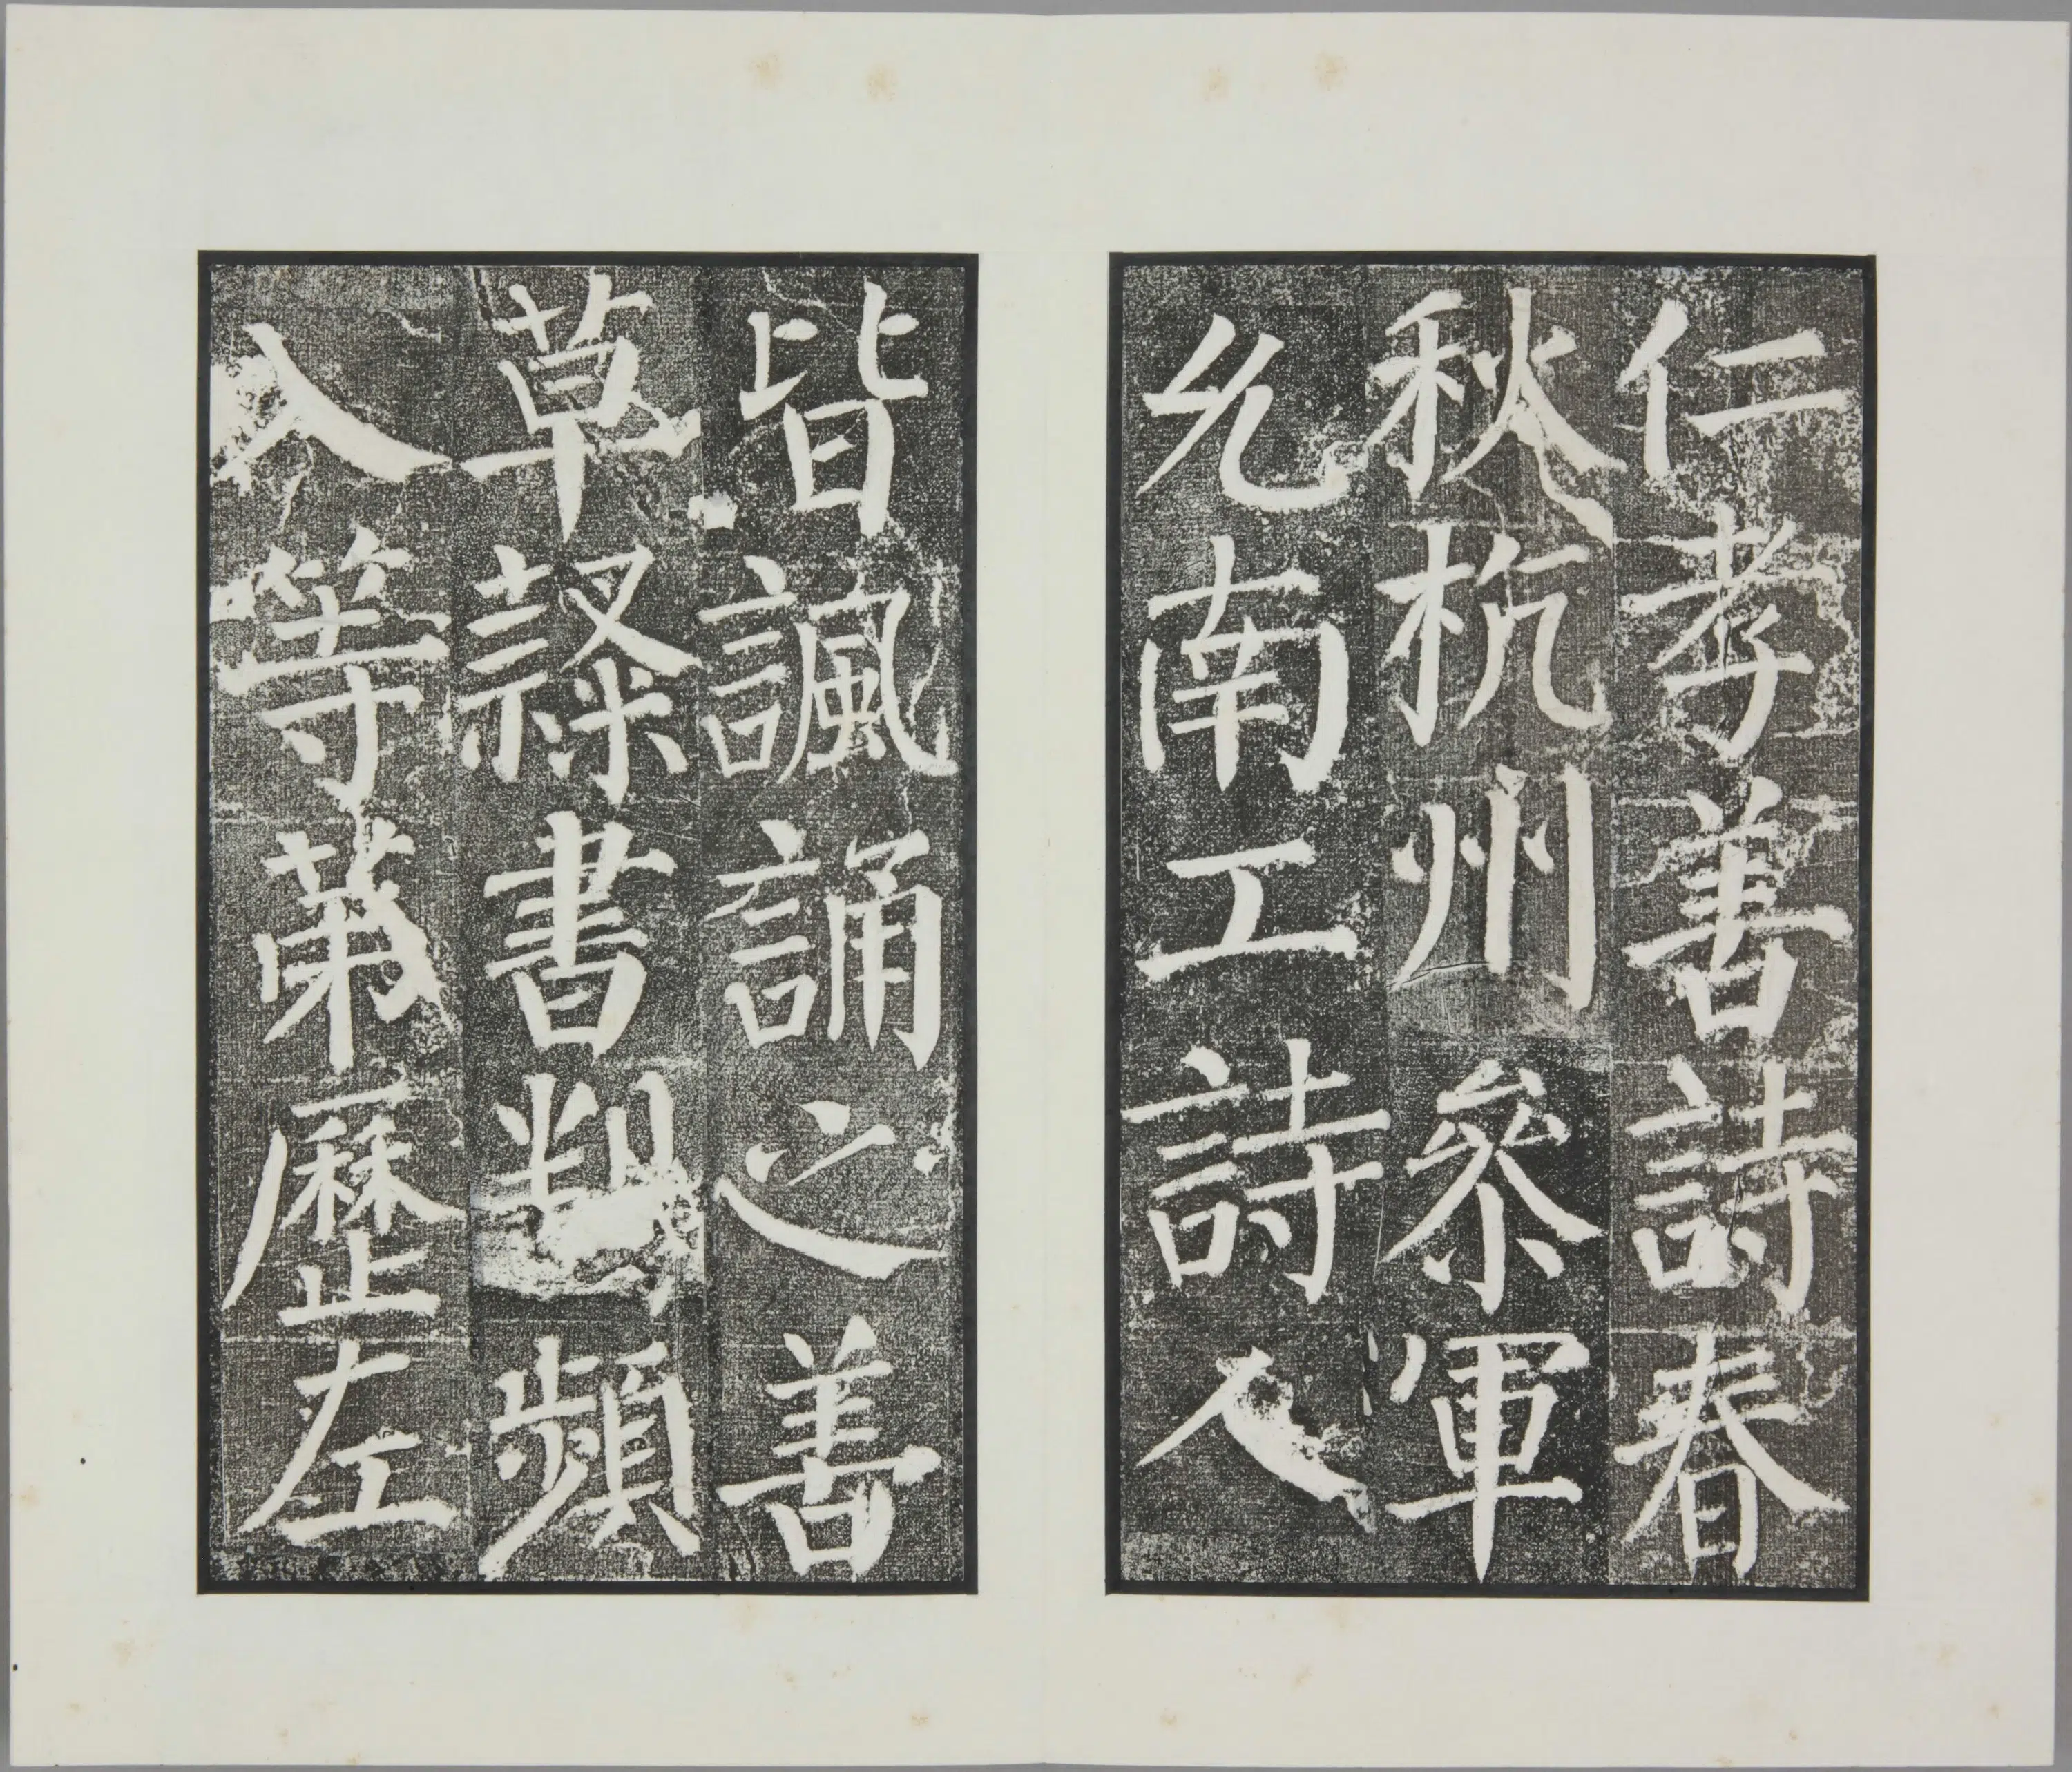 仁孝善詩春
秋杭州參軍
允南工詩人
皆諷誦之善
草隸書判頻
入等第歷左